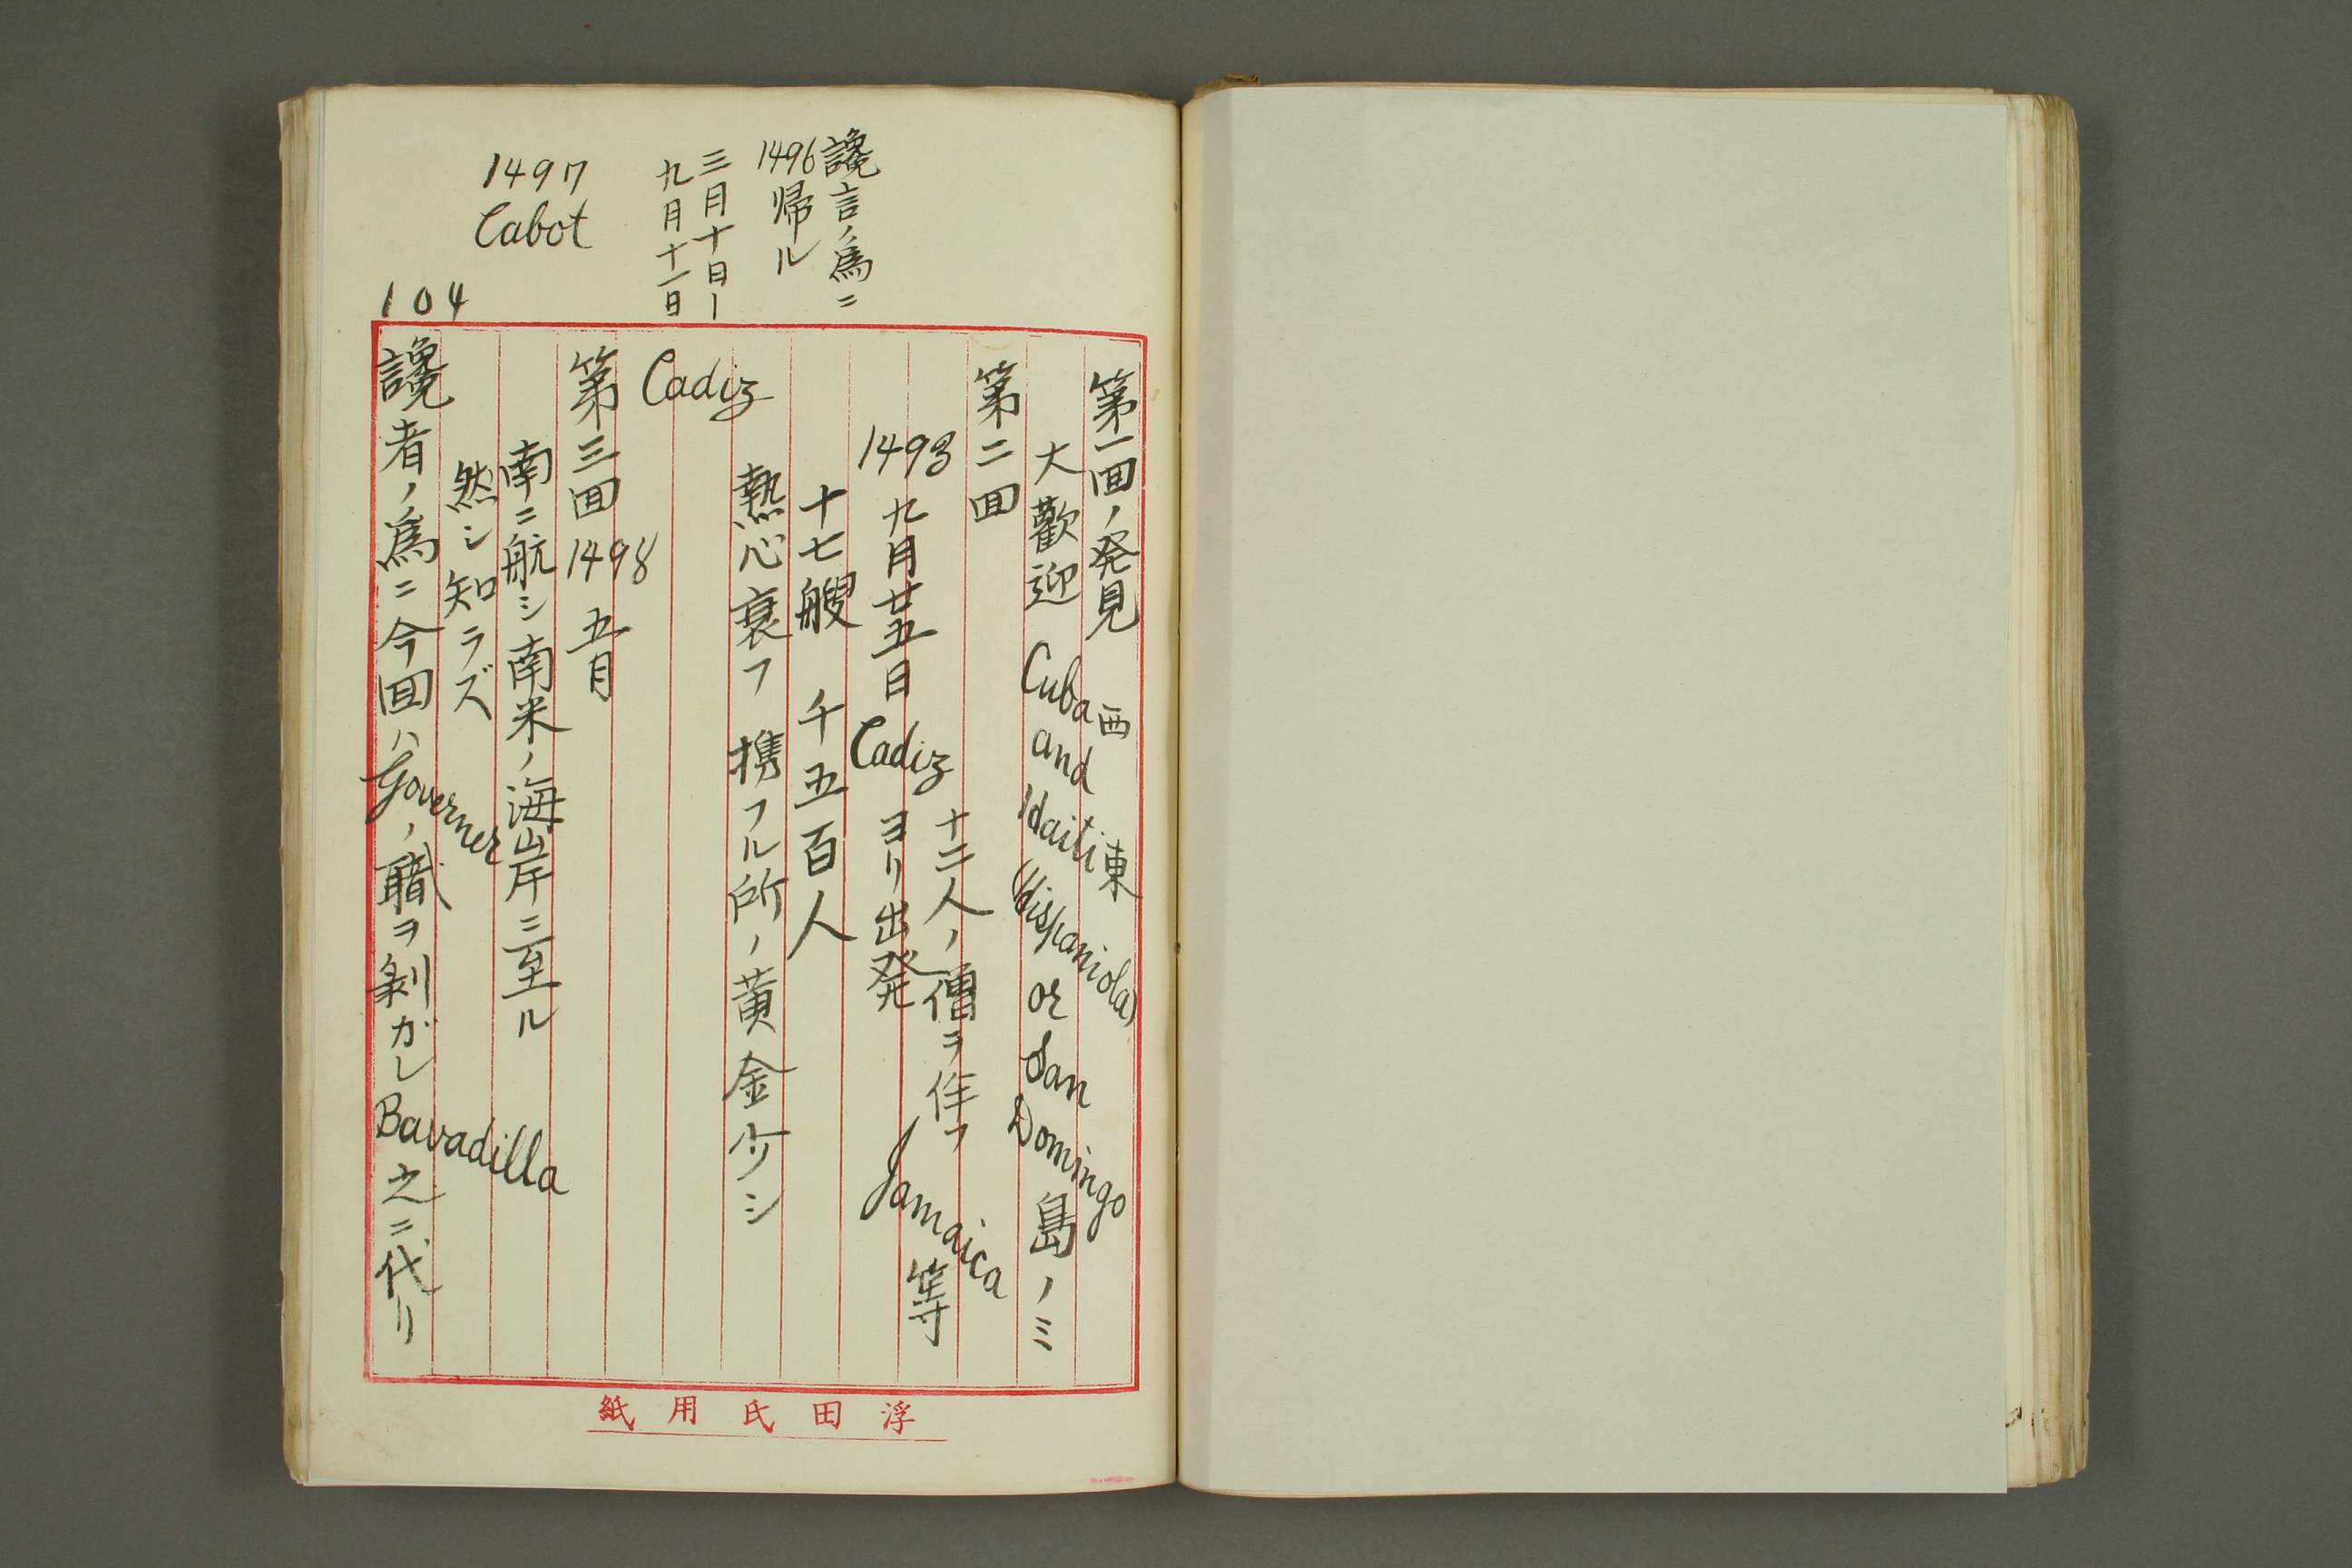 讒言ノ爲ニ
1496帰ル
三月十日ー
九月十一日
1497
Cabot
104
第一回ノ発見 西 東
大歡迎 Cuba and Haiti (Hispaniola) or San Domingo 島ノミ
第二回
十二人ノ僧ヲ伴フ Jamaica 等
1493 九月廿五日 Cadiz ヨリ出発
十七艘 千五百人
熱心衰フ 携フル所ノ黄金少シ
Cadiz
第三回 1498 五月
南ニ航シ南米ノ海岸ニ至ル
然シ知ラズ
讒者ノ爲ニ今回ハGovernerノ職ヲ剥ガレ Bavadilla 之ニ代リ
浮田氏用紙